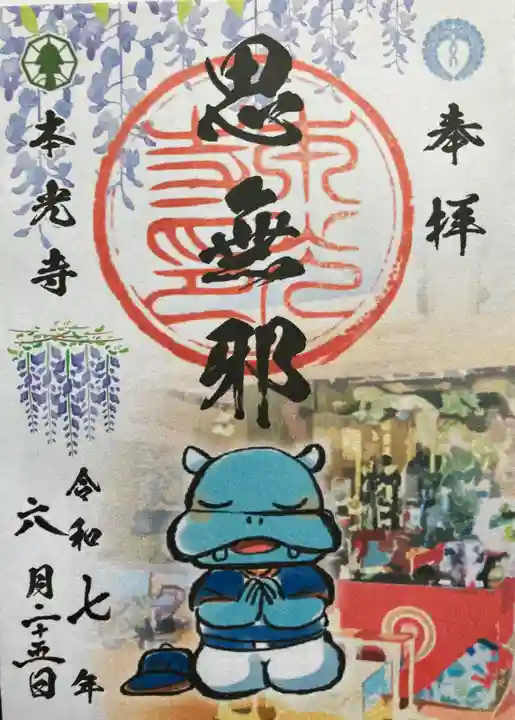 奉拝
思無邪
本光寺
令和七年
六月二十五日